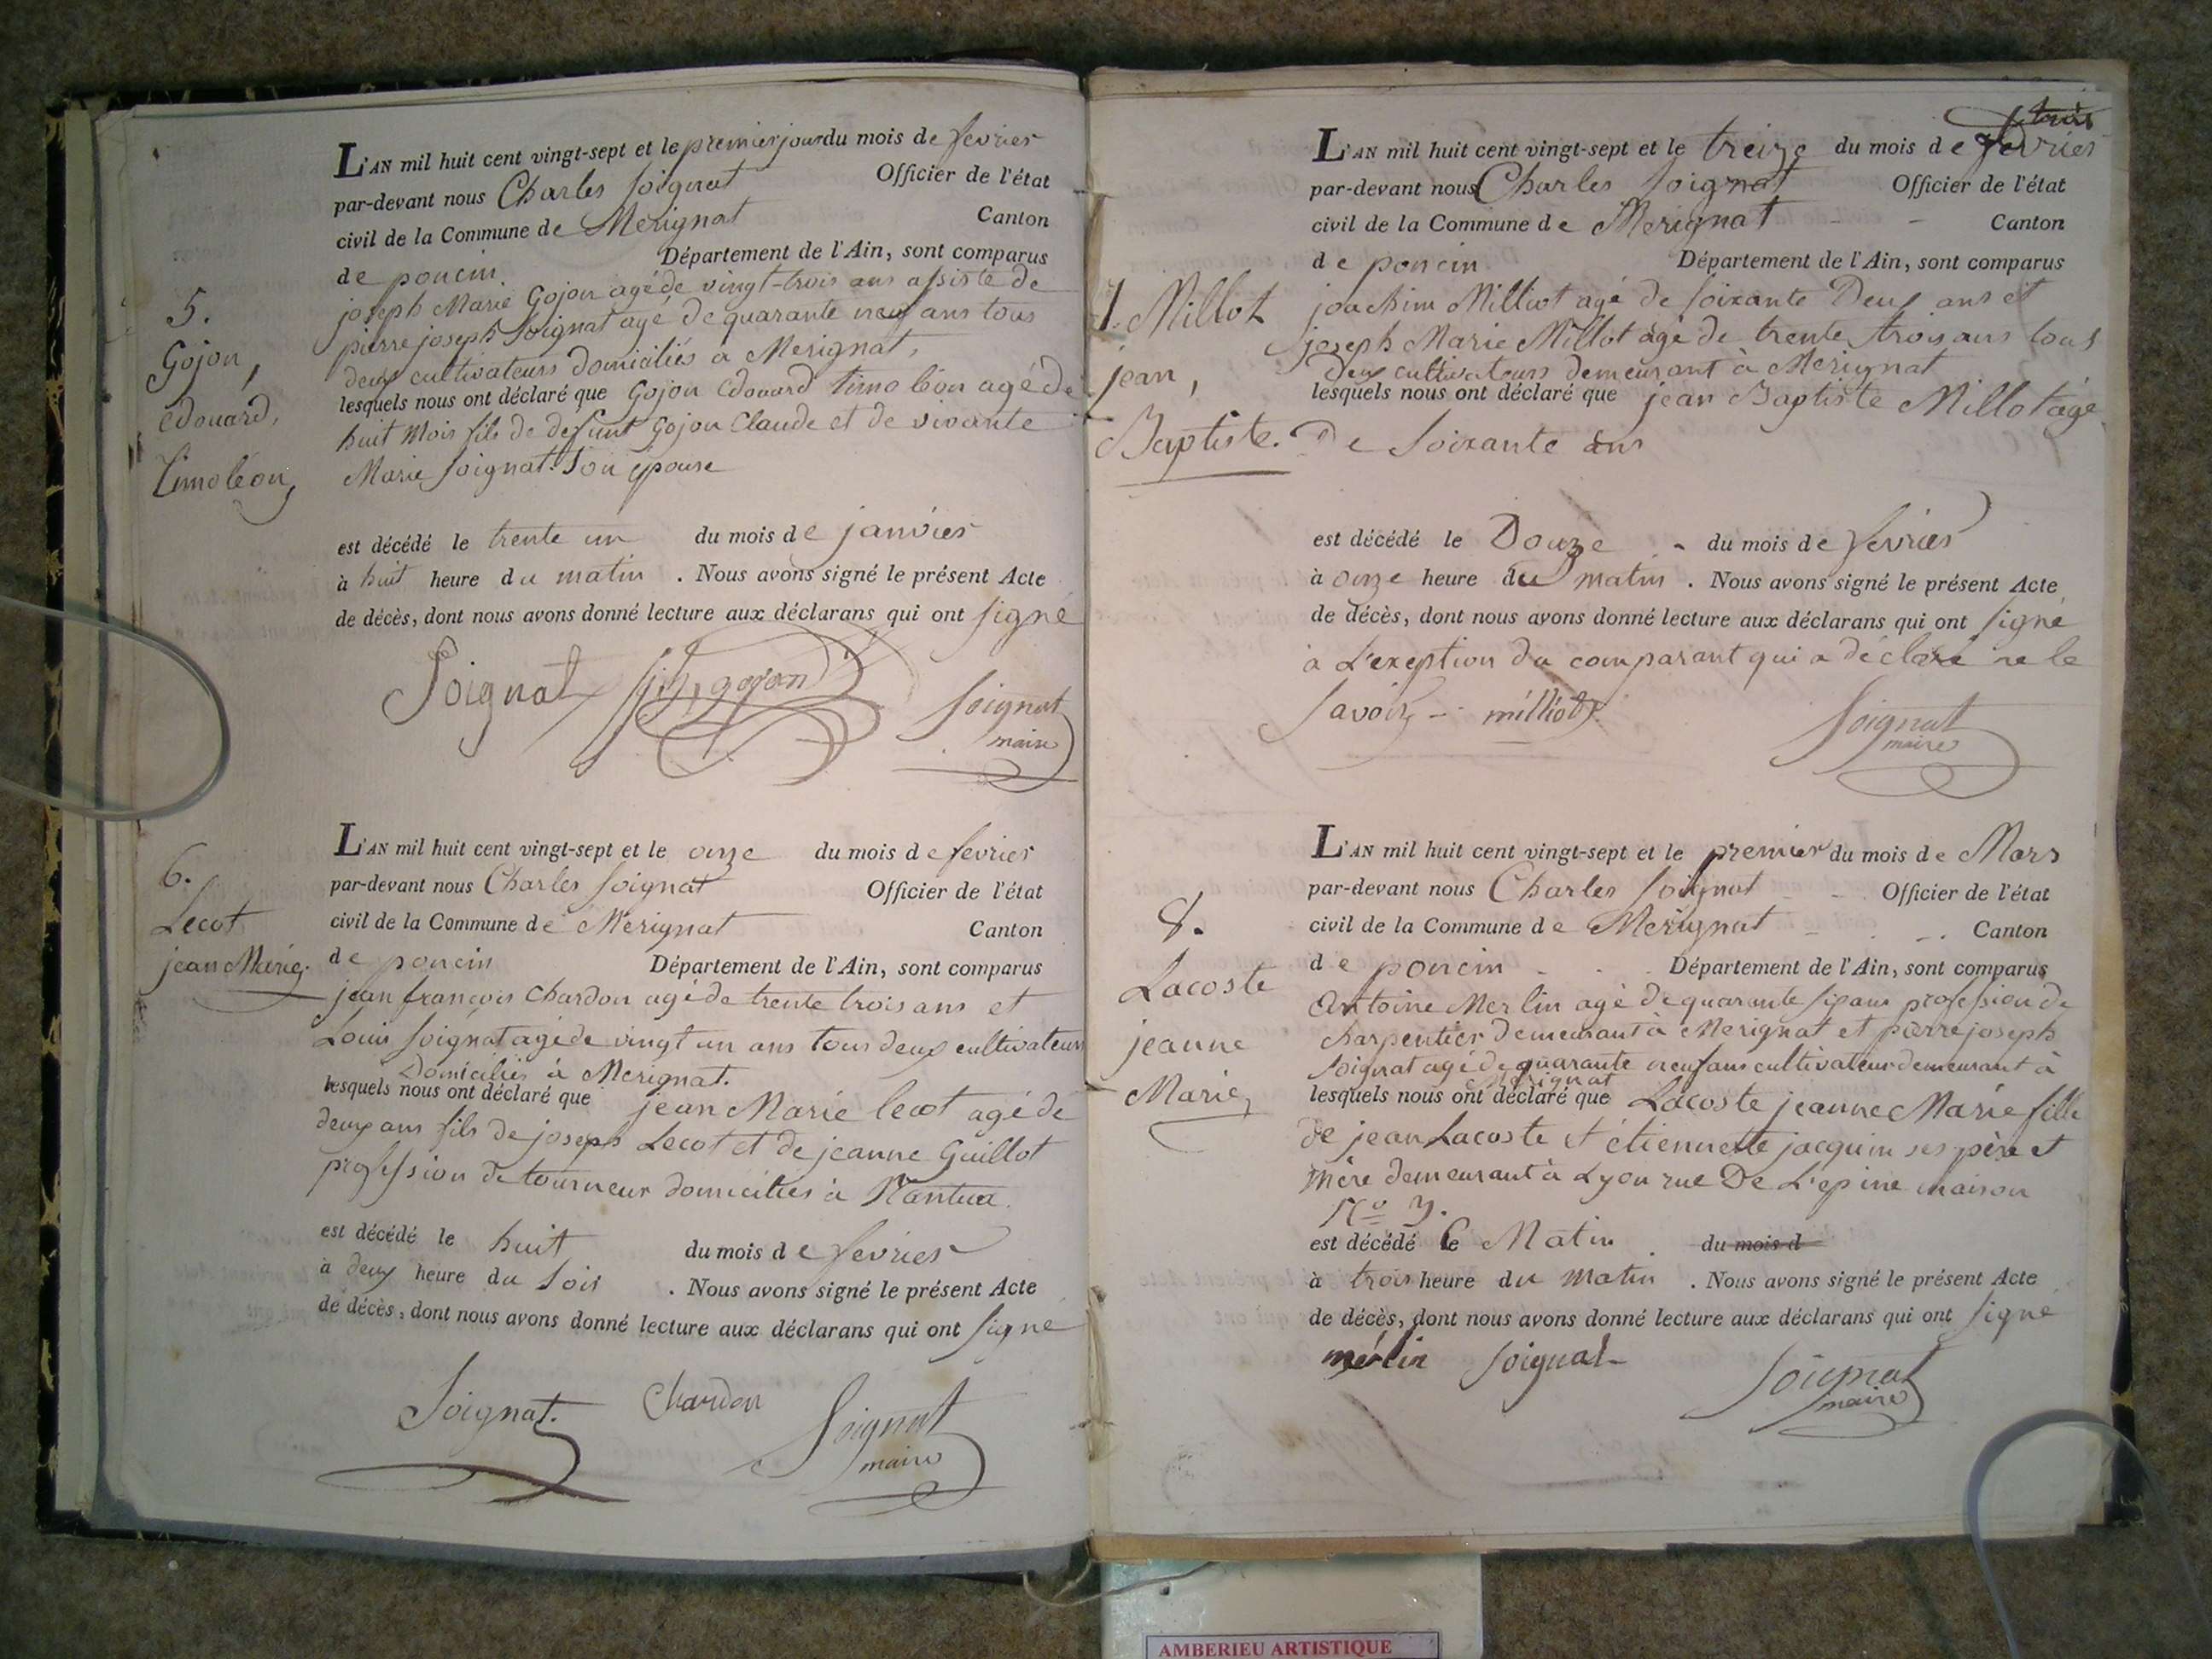 L'AN mil huit cent vingt-sept et le premier jour du mois de fevrier
par-devant nous Charles Soignat Officier de l'état
civil de la Commune de Merignat Canton
de poncin Département de l'Ain, sont comparus
joseph Marie Gojon agé de vingt-trois ans assisté de
pierre joseph Soignat agé de quarante neuf ans tous
deux cultivateurs domiciliés a Merignat,
lesquels nous ont déclaré que Gojon Edouard timoléon agé de
huit Mois fils de defunt Gojon Claude et de vivante
Marie Soignat son épouse
est décédé le trente un du mois de janvier
à huit heure du matin . Nous avons signé le présent Acte
de décès, dont nous avons donné lecture aux déclarans qui ont signé
Soignat gojon Soignat
maire
5.
Gojon,
edouard,
timoléon,
L'AN mil huit cent vingt-sept et le onze du mois de fevrier
par-devant nous Charles Soignat Officier de l'état
civil de la Commune de Merignat Canton
de poncin Département de l'Ain, sont comparus
jean françois Chardon agé de trente trois ans et
Louis Soignat agé de vingt un ans tous deux cultivateurs
Domiciliés à Merignat.
lesquels nous ont déclaré que jean Marie lecot agé de
deux ans fils de joseph Lecot et de jeanne Guillot
profession de tourneur domiciliés à Nantua.
est décédé le huit du mois de fevrier
à deux heure du soir . Nous avons signé le présent Acte
de décès, dont nous avons donné lecture aux déclarans qui ont signé
Soignat. Chardon Soignat
maire
6.
Lecot
jean Marie.
trois
L'AN mil huit cent vingt-sept et le treize du mois de fevrier
par-devant nous Charles Soignat Officier de l'état
civil de la Commune de Merignat Canton
de poncin Département de l'Ain, sont comparus
joachim Milliot agé de soixante Deux ans et
joseph Marie Millot agé de trente trois ans tous
deux cultivateurs demeurant à Merignat
lesquels nous ont déclaré que jean Baptiste Millot agé
De soixante ans
est décédé le Douze du mois de fevrier
à onze heure du matin . Nous avons signé le présent Acte
de décès, dont nous avons donné lecture aux déclarans qui ont signé
à L'exeption du comparant qui a déclaré ne le
savoir milliot Soignat
maire
Millot
jean,
Baptiste.
L'AN mil huit cent vingt-sept et le premier du mois de Mars
par-devant nous Charles Soignat Officier de l'état
civil de la Commune de Merignat Canton
de poncin Département de l'Ain, sont comparus
Antoine Merlin agé de quarante six ans profession de
charpentier demeurant à Merignat et pierre joseph
Soignat agé de quarante neuf ans cultivateur demeurant à
Merignat
lesquels nous ont déclaré que Lacoste jeanne Marie fille
de jean Lacoste et étiennette jacquin ses père et
mère demeurant à Lyon rue De L'epine maison
No 3.
est décédé le Matin du mois d
à trois heure du matin . Nous avons signé le présent Acte
de décès, dont nous avons donné lecture aux déclarans qui ont signé
merlin Soignat Soignat
maire
8.
Lacoste
jeanne
Marie,
AMBERIEU ARTISTIQUE